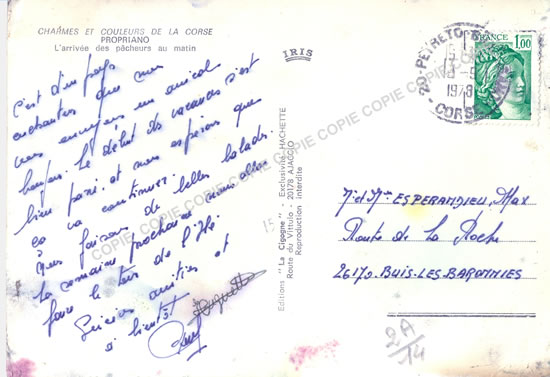 CHARMES ET COULEURS DE LA CORSE
PROPRIANO
L'arrivée des pêcheurs au matin
C'est d'un pays
enchanteur que nous
vous envoyons un amical
bonjour. Le début des vacances s'est
bien passé et nous espérons que
ça va continuer.
Nous faisons de belles balades.
La semaine prochaine nous allons
faire le tour de l'Île
Sincères amitiés et
à bientôt
Huguette
IRIS
Editions "La Cigogne" - Exclusivité HACHETTE
Route du Vittulo - 20178 AJACCIO
Reproduction interdite
COPIE COPIE COPIE COPIE COPIE COPIE COPIE COPIE
20 PETRETO
1978
CORSE
FRANCE
1,00
M et Mme ESPERANDIEU, Max
Route de La Roche
26170 - BUIS-LES-BARONNIES
2A
14